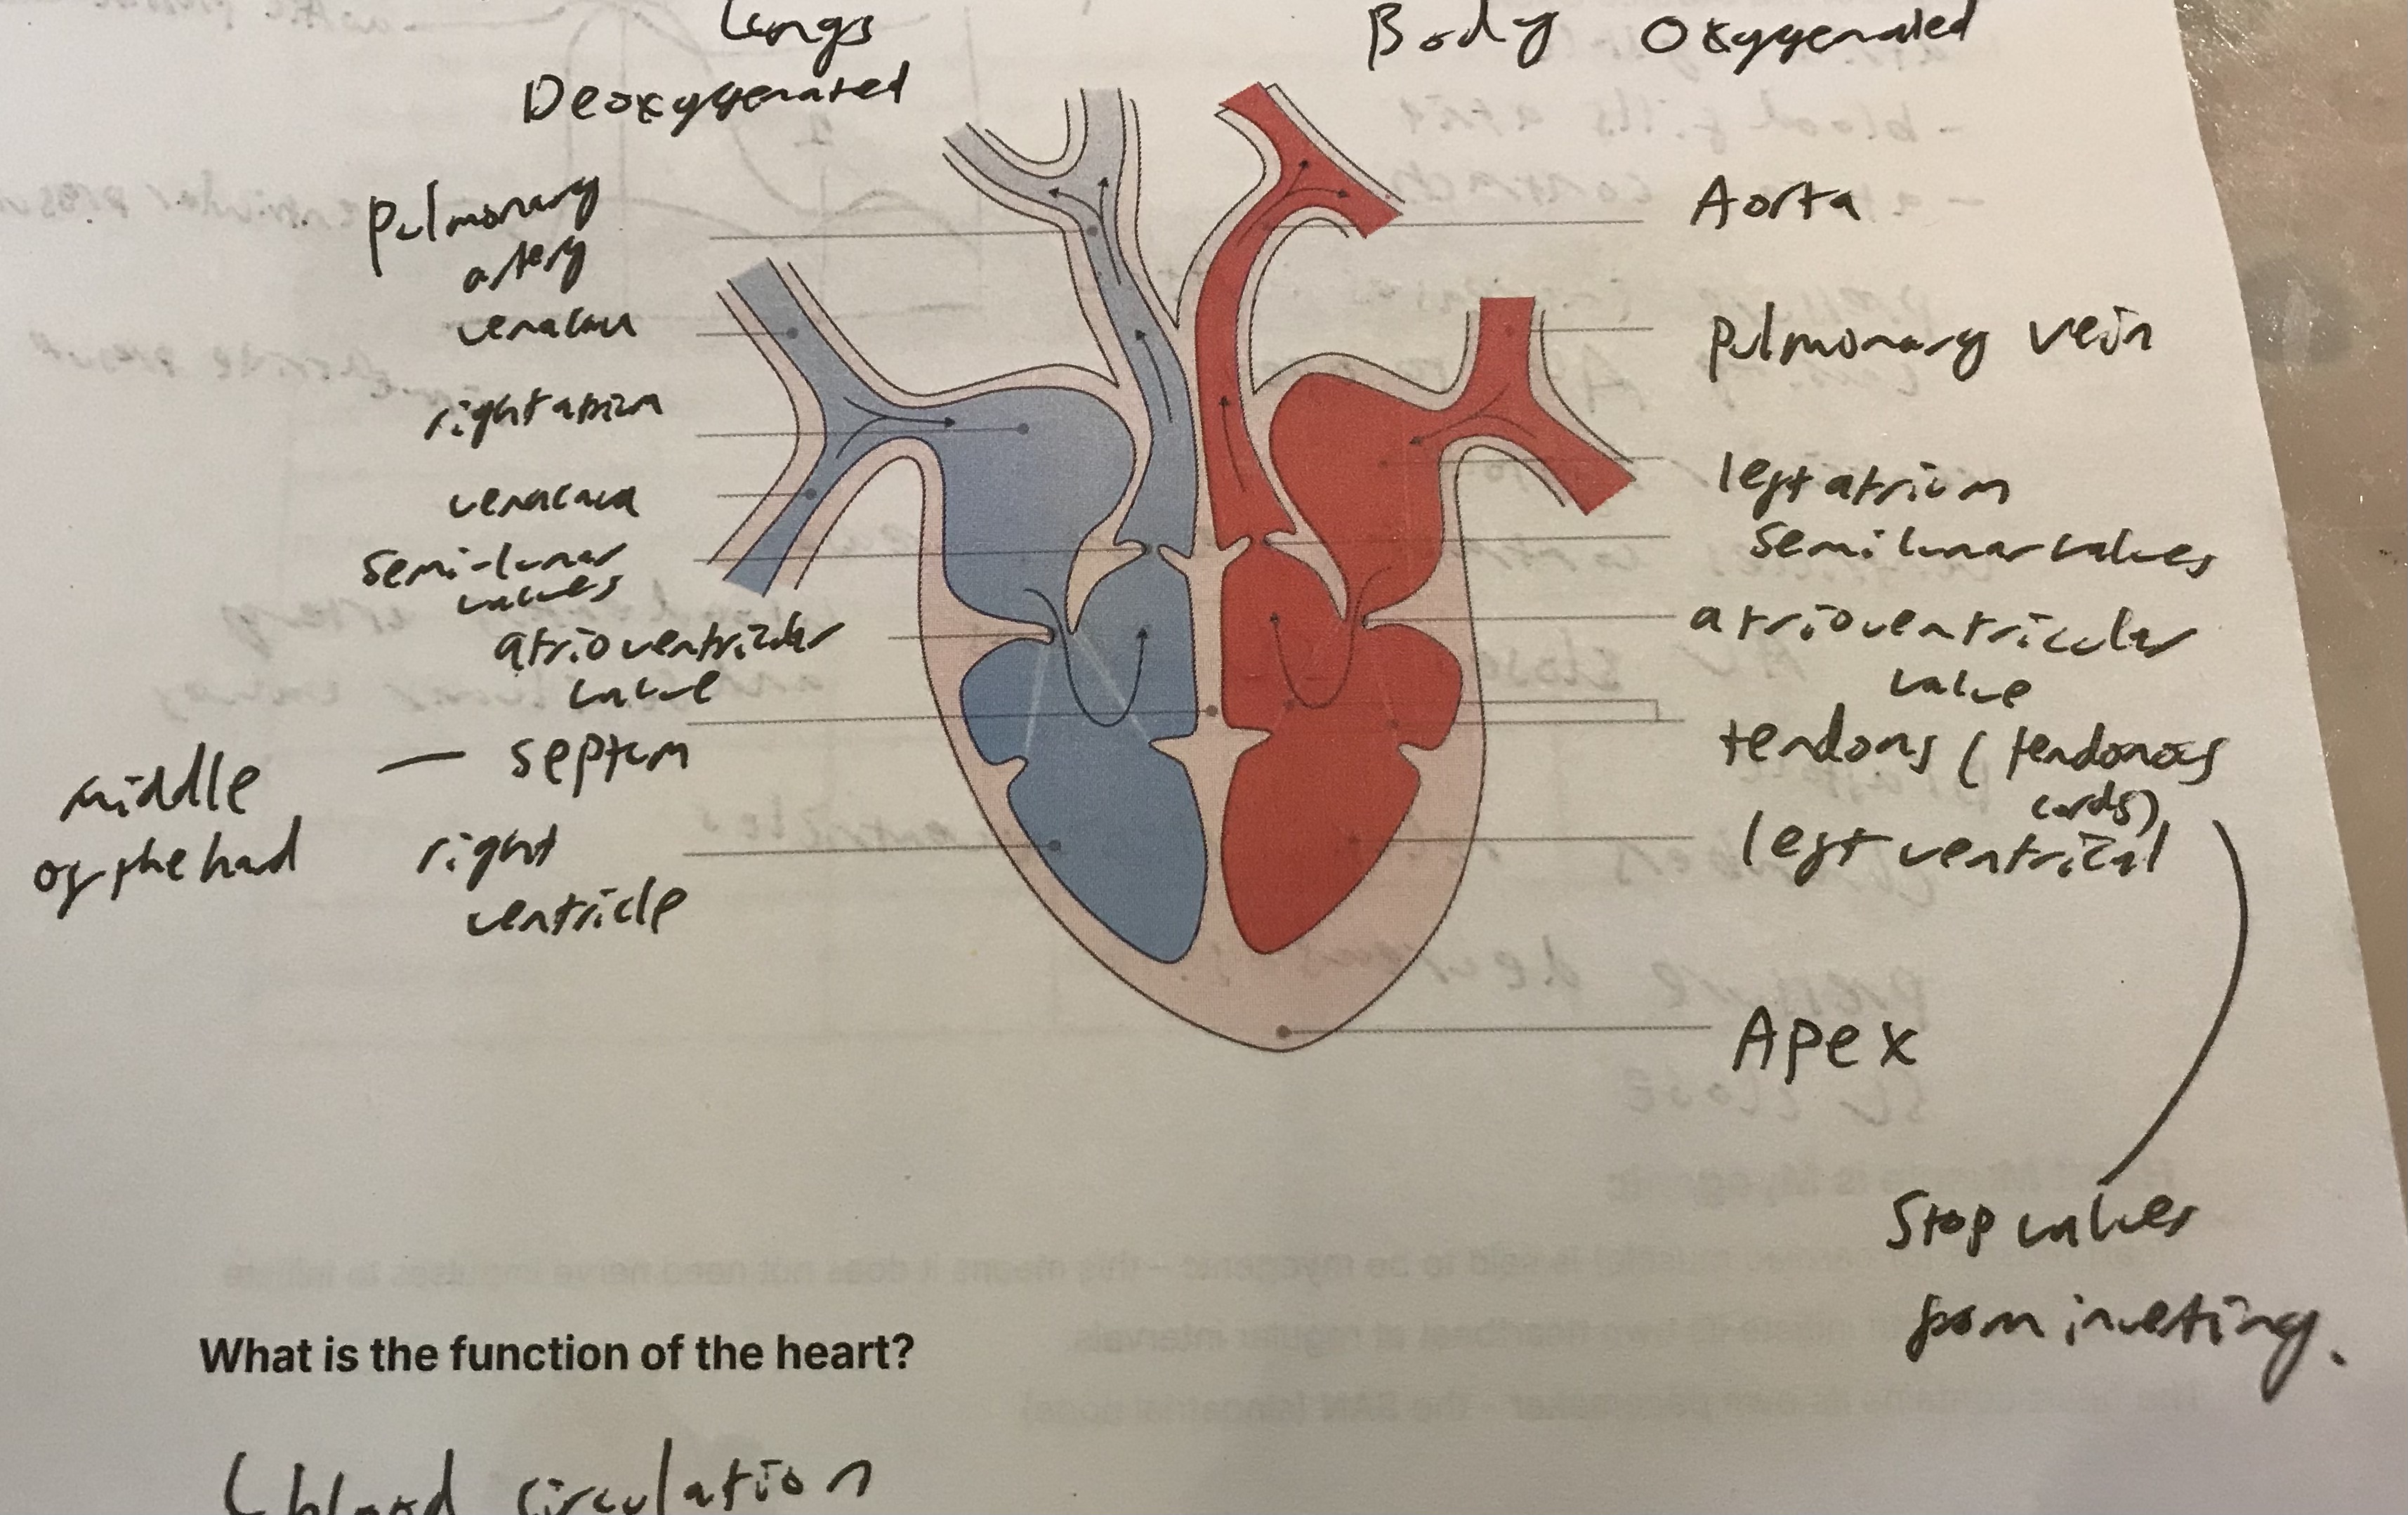 Lungs
Deoxyygenated
Body Oxyygenated
pulmonary
artery
Aorta
venacava
pulmonary vein
right atrium
left atrium
venacava
semi-lunar
valves
semi lunar valves
atrioventricular
valve
atrioventricular
valve
middle
of the
— septum
tendons (tendonous
cords)
right
ventricle
left ventrical
Apex
Stop valves
from inverting.
What is the function of the heart?
blood circulation